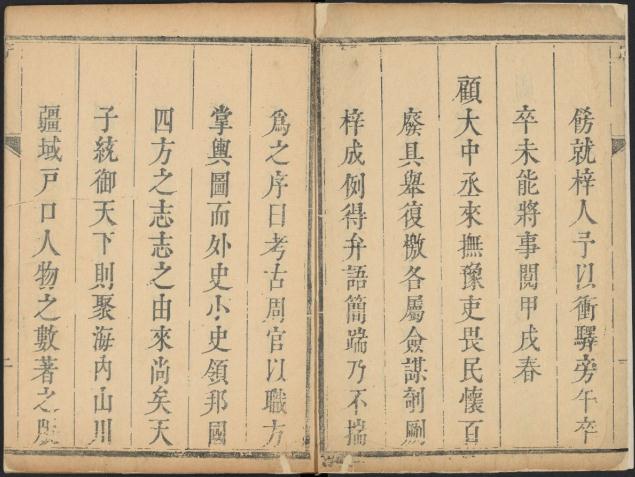 傍就梓人予以衝驛旁午卒
卒未能將事閱甲戌春
顧大中丞來撫豫吏畏民懷百
廢具舉復檄各屬僉謀剞劂
梓成例得弁語簡端乃不揣
為之序曰考古周官以職方
掌輿圖而外史小史領邦國
四方之志志之由來尚矣天
子統御天下則聚海內山川
疆域戶口人物之數著之